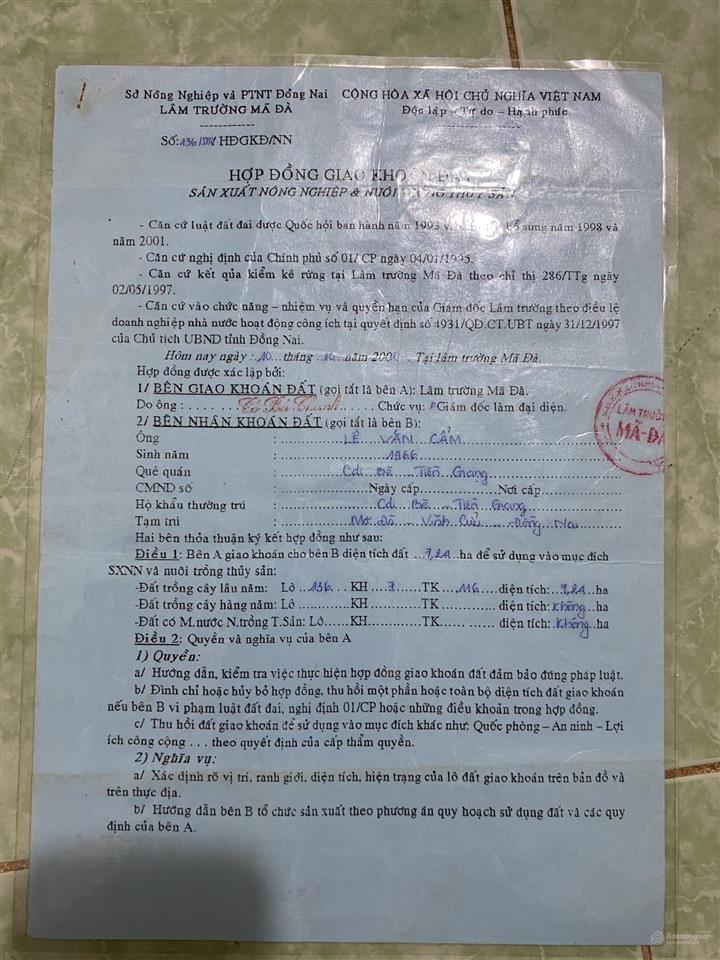 Sở Nông Nghiệp và PTNT Đồng Nai
LÂM TRƯỜNG MÃ ĐÀ
CỘNG HÒA XÃ HỘI CHỦ NGHĨA VIỆT NAM
Độc lập – Tự do – Hạnh phúc
Số: 136 / HĐGKĐ/NN
HỢP ĐỒNG GIAO KHOÁN
SẢN XUẤT NÔNG NGHIỆP & NUÔI TRỒNG THỦY SẢN
- Căn cứ luật đất đai được Quốc hội ban hành năm 1993 bổ sung năm 1998 và
năm 2001.
- Căn cứ nghị định của Chính phủ số 01/ CP ngày 04/01/1995.
- Căn cứ kết qủa kiểm kê rừng tại Lâm trường Mã Đà theo chỉ thị 286/TTg ngày
02/05/1997.
- Căn cứ vào chức năng – nhiệm vụ và quyền hạn của Giám đốc Lâm trường theo điều lệ
doanh nghiệp nhà nước hoạt động công ích tại quyết định số 4931/QĐ.CT.UBT ngày 31/12/1997
của Chủ tịch UBND tỉnh Đồng Nai.
Hôm nay ngày : 10 tháng 10 năm 200 Tại lâm trường Mã Đà.
Hợp đồng được xác lập bởi:
1/ BÊN GIAO KHOÁN ĐẤT (gọi tắt là bên A): Lâm trường Mã Đà.
Do ông : . . . . . . Tô Bá Thanh . . . . . Chức vụ: P Giám đốc làm đại diện.
2/ BÊN NHẬN KHOÁN ĐẤT (gọi tắt là bên B):
Ông : LÊ VĂN CẨM
Sinh năm : 1966
Quê quán : Cái Bè Tiền Giang
CMND số : Ngày cấp Nơi cấp
Hộ khẩu thường trú : Cái Bè – Tiền Giang
Tạm trú : Mã Đà – Vĩnh Cửu – Đồng Nai
Hai bên thỏa thuận ký kết hợp đồng như sau:
Điều 1: Bên A giao khoán cho bên B diện tích đất ha để sử dụng vào mục đích
SXNN và nuôi trồng thủy sản:
-Đất trồng cây lâu năm: Lô 136 KH 7 TK 116 diện tích: ha
-Đất trồng cây hàng năm: Lô KH TK diện tích: Không ha
-Đất có M.nước N.trồng T.Sản: Lô KH TK diện tích: Không ha
Điều 2: Quyền và nghĩa vụ của bên A
1) Quyền:
a/ Hướng dẫn, kiểm tra việc thực hiện hợp đồng giao khoán đất đảm bảo đúng pháp luật.
b/ Đình chỉ hoặc hủy bỏ hợp đồng, thu hồi một phần hoặc toàn bộ diện tích đất giao khoán
nếu bên B vi phạm luật đất đai, nghị định 01/CP hoặc những điều khoản trong hợp đồng.
c/ Thu hồi đất giao khoán để sử dụng vào mục đích khác như: Quốc phòng – An ninh – Lợi
ích công cộng . . . theo quyết định của cấp thẩm quyền.
2) Nghĩa vụ:
a/ Xác định rõ vị trí, ranh giới, diện tích, hiện trạng của lô đất giao khoán trên bản đồ và
trên thực địa.
b/ Hướng dẫn bên B tổ chức sản xuất theo phương án quy hoạch sử dụng đất và các quy
định của bên A.
LÂM TRƯỜ
MÃ-ĐÀ
Batdongsan